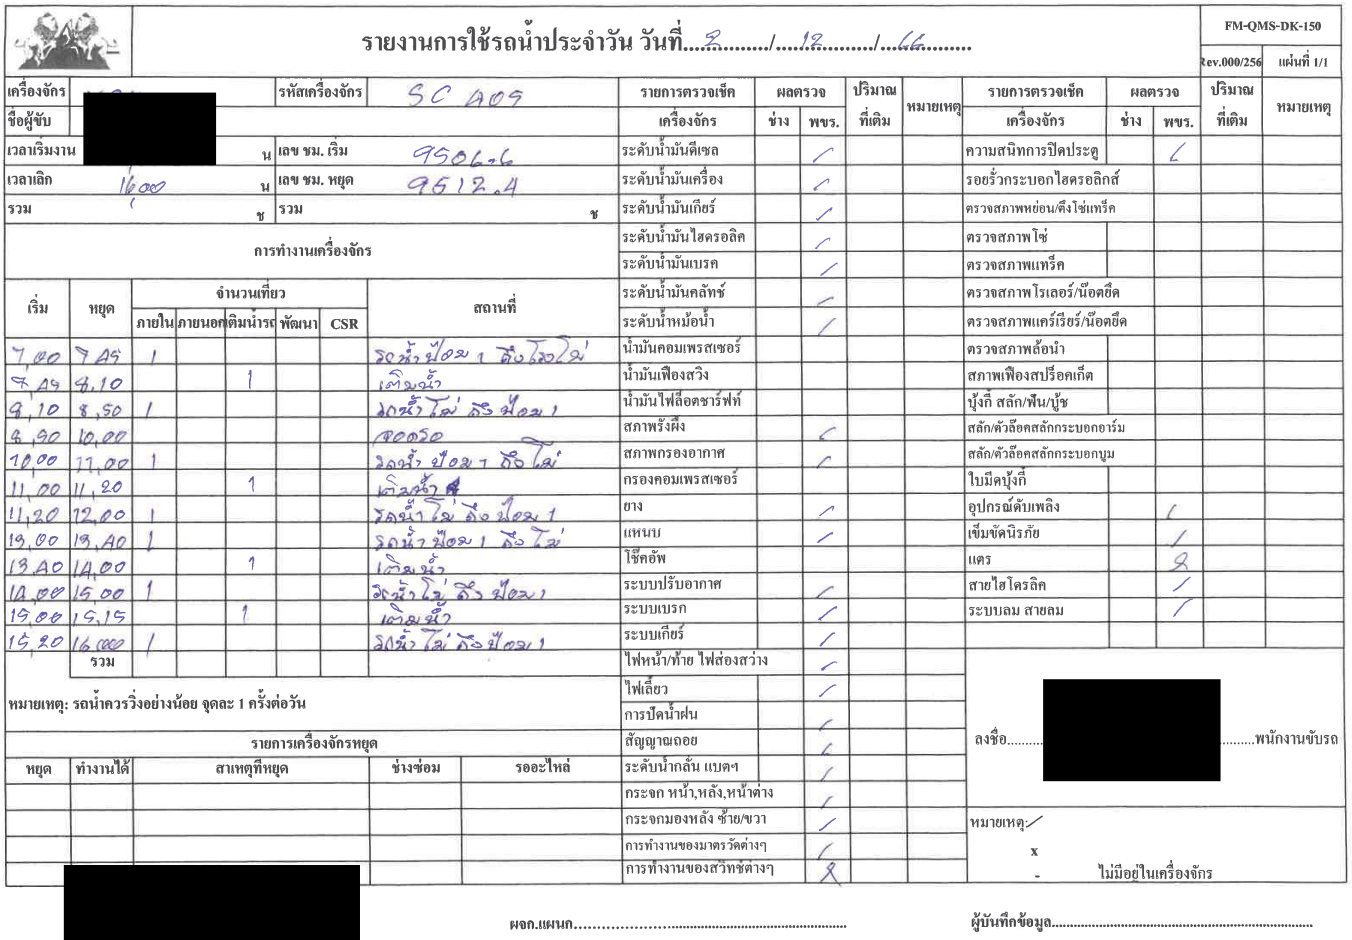 รายงานการใช้รถน้ำประจำวัน วันที่....2........../....12........../....66..........
FM-QMS-DK-150
Rev.000/256 แผ่นที่ 1/1
เครื่องจักร รหัสเครื่องจักร SC A05
ชื่อผู้ขับ
เวลาเริ่มงาน น เลข ชม. เริ่ม 9506.6
เวลาเลิก 16,00 น เลข ชม. หยุด 9512.4
รวม ช รวม ช
การทำงานเครื่องจักร
เริ่ม หยุด จำนวนเที่ยว สถานที่
ภายใน ภายนอก เติมน้ำรถ พัฒนา CSR
7,00 7 45 1 รดน้ำ ป้อม 1 ถึง โรงโม่
7,45 8.10 1 เติมน้ำ
8,10 8,50 1 รดน้ำ โม่ ถึง ป้อม 1
8,50 10,00 จอดรอ
10,00 11,00 1 รดน้ำ ป้อม 1 ถึง โม่
11,00 11,20 1 เติมน้ำ
11,20 12,00 1 รดน้ำ โม่ ถึง ป้อม 1
13,00 13,40 1 รดน้ำ ป้อม 1 ถึง โม่
13,40 14,00 1 เติมน้ำ
14,00 15,00 1 รดน้ำ โม่ ถึง ป้อม 1
15,00 15,15 1 เติมน้ำ
15,20 16,00 1 รดน้ำ โม่ ถึง ป้อม 1
รวม
หมายเหตุ: รถน้ำควรวิ่งอย่างน้อย จุดละ 1 ครั้งต่อวัน
รายการเครื่องจักรหยุด
หยุด ทำงานได้ สาเหตุที่หยุด ช่างซ่อม รออะไหล่
รายการตรวจเช็ค ผลตรวจ ปริมาณ หมายเหตุ
เครื่องจักร ช่าง พขร. ที่เติม
ระดับน้ำมันดีเซล /
ระดับน้ำมันเครื่อง /
ระดับน้ำมันเกียร์ /
ระดับน้ำมันไฮดรอลิค /
ระดับน้ำมันเบรค /
ระดับน้ำมันคลัทช์ /
ระดับน้ำหม้อน้ำ /
น้ำมันคอมเพรสเซอร์
น้ำมันเฟืองสวิง
น้ำมันไฟล็อตชาร์ฟท์
สภาพรังผึ้ง /
สภาพกรองอากาศ /
กรองคอมเพรสเซอร์
ยาง /
แหนบ /
โช๊คอัพ
ระบบปรับอากาศ /
ระบบเบรก /
ระบบเกียร์ /
ไฟหน้า/ท้าย ไฟส่องสว่าง /
ไฟเลี้ยว /
การปัดน้ำฝน /
สัญญาณถอย /
ระดับน้ำกลั่น แบตฯ /
กระจก หน้า,หลัง,หน้าต่าง /
กระจกมองหลัง ซ้าย/ขวา /
การทำงานของมาตรวัดต่างๆ /
การทำงานของสวิทช์ต่างๆ
รายการตรวจเช็ค ผลตรวจ ปริมาณ หมายเหตุ
เครื่องจักร ช่าง พขร. ที่เติม
ความสนิทการปิดประตู /
รอยรั่วกระบอกไฮดรอลิกส์
ตรวจสภาพหย่อน/ตึงโซ่แทร็ค
ตรวจสภาพโซ่
ตรวจสภาพแทร็ค
ตรวจสภาพโรเลอร์/น๊อตยึด
ตรวจสภาพแคร์เรียร์/น๊อตยึด
ตรวจสภาพล้อนำ
สภาพเฟืองสปร็อคเก็ต
บุ้งกี๋ สลัก/ฟัน/บู้ช
สลัก/ตัวล๊อคสลักกระบอกอาร์ม
สลัก/ตัวล๊อคสลักกระบอกบูม
ใบมีดบุ้งกี๋
อุปกรณ์ดับเพลิง /
เข็มขัดนิรภัย /
แตร
สายไฮโดรลิค /
ระบบลม สายลม /
ลงชื่อ..........
..........พนักงานขับรถ
หมายเหตุ: /
x
- ไม่มีอยู่ในเครื่องจักร
ผจก.แผนก..............................
ผู้บันทึกข้อมูล..............................